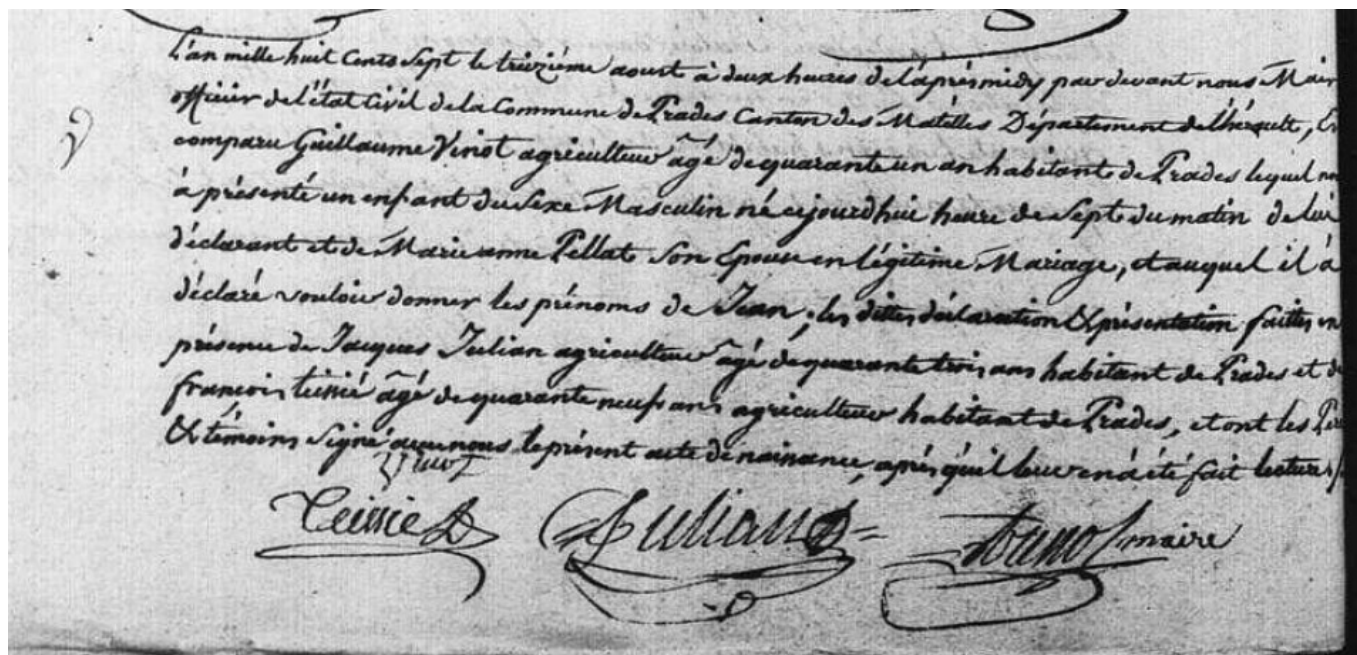 L'an mille huit Cents Sept le treizième aoust à deux heures de l'aprésmidy par devant nous Mair
officier de l'état Civil de la Commune de Prades Canton des Matelles Département de l'hérault, En
comparu Guillaume Viriot agriculteur âgé de quarante un an habitant de Prades lequel no
à présenté un enfant du Sexe Masculin né cejourd'hui heure de Sept du matin de lui
déclarant et de Marie anne Pellat Son Epouse en légitime Mariage, et auquel il à
déclaré vouloir donner les prénoms de Jean ; les dittes déclaration & présentation faittes en
présence de Jacques Julian agriculteur âgé de quarante trois ans habitant de Prades et de
francois teissié âgé de quarante neuf ans agriculteur habitant de Prades, et ont les Pèr
& témoins Signé avec nous le présent acte de naissance, après qu'il leur en à été fait lecture
Teissié Julian maire